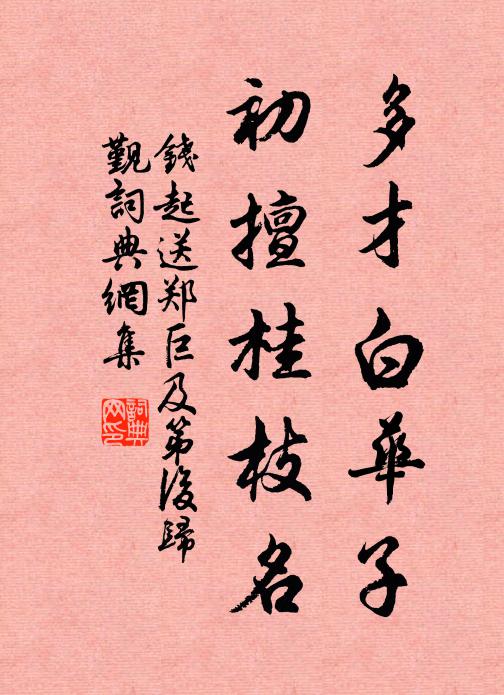 多才白華子
初擅桂枝名
錢起送郑巨及第後歸
覲詞典網集
詞典
网印